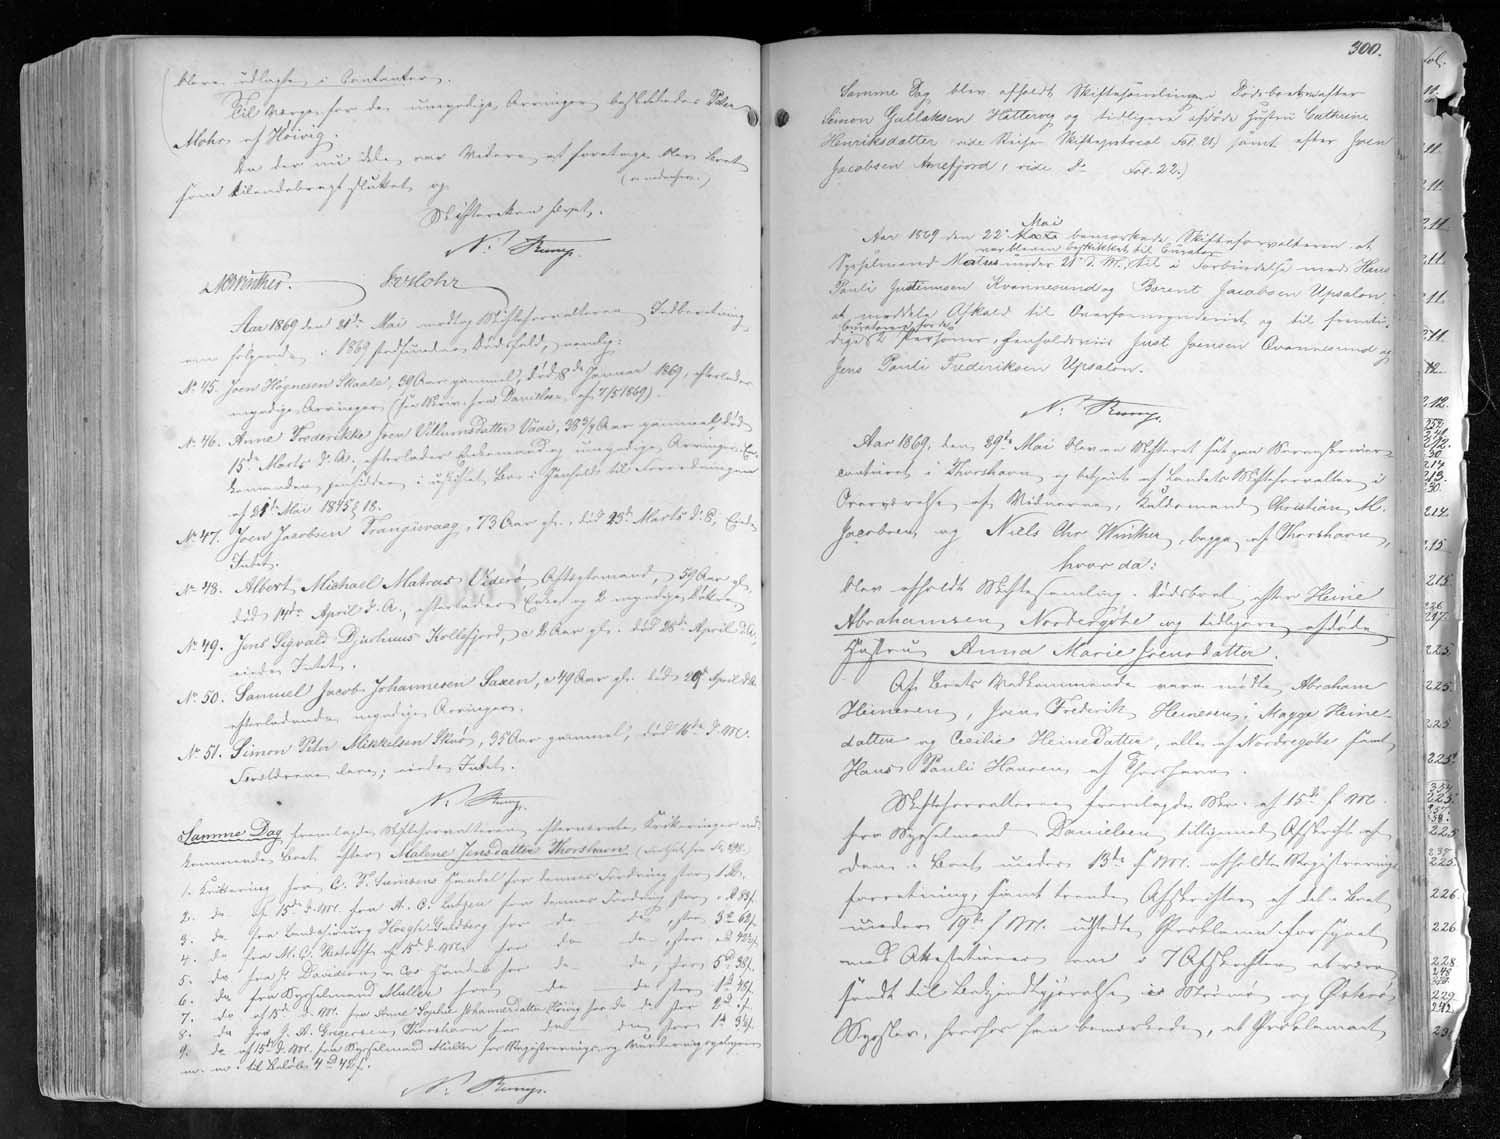 blive udlagte i Contanter.
Til Værge for den umyndige Arvingen beskikkedes Peter
Mohr af Hoivig.
Da der nu ikke var Videre at foretage blev Boet
som tilendebragt sluttet og
Skifteretten hævet.
N. Rump.
NC Winther. J Mohr
Aar 1869 den 21de Mai modtog Skifteforvalteren Indberetning
om følgende i 1869 stedfundne Dødsfald, nemlig:
No 45. Joen Høgnesen Skaale, 39 Aar gammel, død 8de Januar 1869, efterlader
myndige Arvinger (fra Danielsen af 7/5 1869).
No 46. Anne Frederikke Joen Villumsdatter Vaai, 38 3/4 Aar gammel, død
15de Marts d. A., efterlader Enkemand og umyndige Arvinger. En-
kemanden hensidder i uskiftet Bo i Henhold til Forordningen
af 21de Mai 1845 § 18.
No 47. Joen Jacobsen Frangievaag, 73 Aar gl., død 23de Marts d. A., Eiede
Intet.
No 48. Albert Michael Matras Viderø Aftægtsmand, 59 Aar gl.
død 14de April d. A., efterlader Enke og 2 myndige Døttre.
No 49. Jens Sigvald Djurhuus Kollefjord, 2 Aar gl. død 28de April d. A.,
eiede Intet.
No 50. Samuel Jacob Johannesen Saxen, 49 Aar gl. død 20de April d. A.
efterladende myndige Arvinger.
No 51. Simon Peter Mikkelsen Skuø, 35 Aar gammel, død 16de d. M.
Forældrene leve; eiede Intet.
N. Rump.
Samme Dag fremlagde Skifteforvalteren efternævnte Qvitteringer ved-
kommende Boet efter Malene Jensdatter Thorshavn
1. Qvittering fra C. F. Siemsens Handel for dennes Fordring stor
2. do af 15de d. M. fra A. C. Lützen for dennes Fordring, stor 83 s.
3. do fra Landschirurg Hoegh-Guldberg for do do, stor 3 d 62 s.
4. do fra M. C. Restorff af 15de d. M. for do do, stor
5. do fra J. Davidsen og Co Handel for do do, stor 5 d 38 s.
6. do fra Sysselmand Müller for do do stor 1 d 48 s.
7. do af 15de d. M. fra Anne Sophie Johannesdatter Hoivig for do do stor 2 d
8. do fra J. A. Gregersen Thorshavn for do do stor 1 d
9. do af 15de d. M. fra Sysselmand Müller for Registrerings og Vurderingsgebyrer
m. m. til Beløb 4 d 42 s.
N. Rump.
300.
Samme Dag blev afholdt Skiftesamling i Dødsboet efter
Simon Gullaksen Hetterøg og tidligere afdøde Hustru Cathrine
Henriksdatter vide Skifteprotocol Fol. 21) samt efter Joen
Jacobsen Arnefjord, (vide do Fol. 22.)
Mai
Aar 1869 den 22de bemærkede Skifteforvalteren at
var bleven beskikket til Curator
Sysselmand Matras under 21de d. M. til i Forbindelse med Hans
Pauli Justinusen Kvannesund og Barent Jacobsen Upsalon
at meddele Afkald til Overformynderiet og til fremti-
Curatorer for de
dige 2 Personer, henholdsviis Just Joensen Qvannesund og
Jens Pauli Frederiksen Upsalon.
N. Rump.
Aar 1869, den 29de Mai blev en Skifteret sat paa Sorenskriver-
contoret i Thorshavn og betjent af Landets Skifteforvalter i
Overværelse af Vidnerne, Christian M.
Jacobsen og Niels Chr. Winther, begge af Thorshavn,
hvor da:
blev afholdt Skiftesamling i Dødsboet efter Heine
Abrahamsen Nordregøte og tidligere afdøde
Hustru Anna Marie Joensdatter.
Af Boets Vedkommende vare mødte Abraham
Heinesen, Joen Frederik Heinesen, Magge Heine-
datter og Cecilie Heinedatter, alle af Nordregøte samt
Hans Pauli Hansen af Thorshavn.
Skifteforvalteren fremlagde Skr. af 15de f. M.
fra Sysselmand Danielsen tilligemed Afskrift af
den i Boet under 13de f. M. afholdte Registrerings-
forretning, samt trende Afskrifter af det i Boet
under 19de f. M. udstedte Proklama forsynet
med Attestationer om i 7 Afskrifter at være
sendt til Bekjendtgjørelse i Strømø og Østerø
Sysler, hvorhos han bemærkede, at Proklamaet